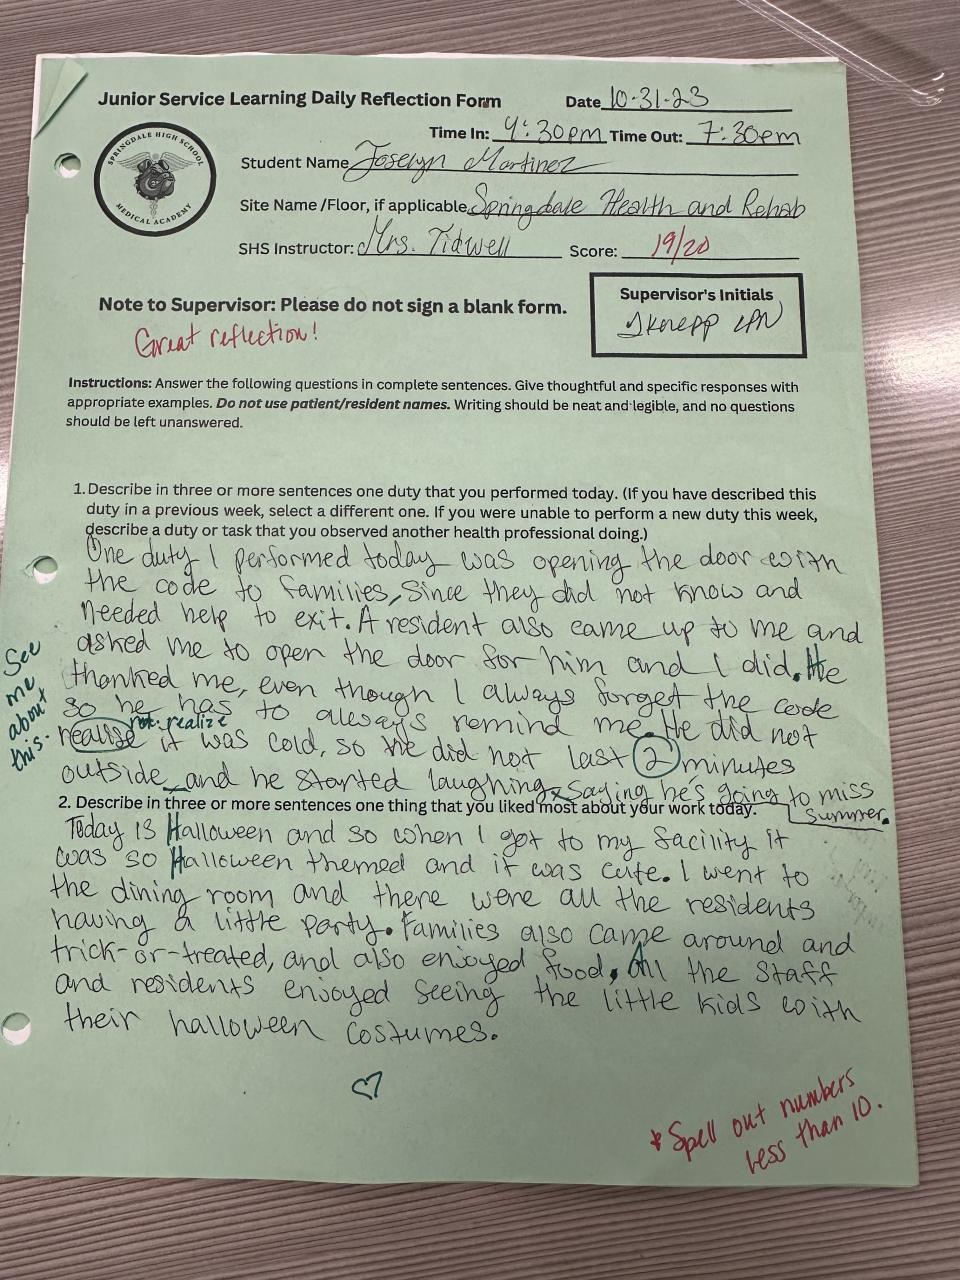 Junior Service Learning Daily Reflection Form Date 10-31-23
Time In: 4:30pm Time Out: 7:30pm
SPRINGDALE HIGH SCHOOL
MEDICAL ACADEMY
Student Name Joselyn Martinez
Site Name /Floor, if applicable Springdale Health and Rehab
SHS Instructor: Mrs. Tidwell Score: 19/20
Note to Supervisor: Please do not sign a blank form.
Supervisor's Initials
JKnepp LPN
Great reflection!
Instructions: Answer the following questions in complete sentences. Give thoughtful and specific responses with
appropriate examples. Do not use patient/resident names. Writing should be neat and legible, and no questions
should be left unanswered.
1. Describe in three or more sentences one duty that you performed today. (If you have described this
duty in a previous week, select a different one. If you were unable to perform a new duty this week,
describe a duty or task that you observed another health professional doing.)
One duty I performed today was opening the door with
the code to families, since they did not know and
needed help to exit. A resident also came up to me and
asked me to open the door for him and I did. He
thanked me, even though I always forget the code
so he has to always remind me. He did not
not realize
realise it was cold, so he did not last 2 minutes
outside and he started laughing, saying he's going to miss
summer.
See
me
about
this.
2. Describe in three or more sentences one thing that you liked most about your work today.
Today is Halloween and so when I got to my facility it
was so Halloween themed and it was cute. I went to
the dining room and there were all the residents
having a little party. Families also came around and
trick-or-treated, and also enjoyed food. All the staff
and residents enjoyed seeing the little kids with
their halloween costumes.
* Spell out numbers
less than 10.